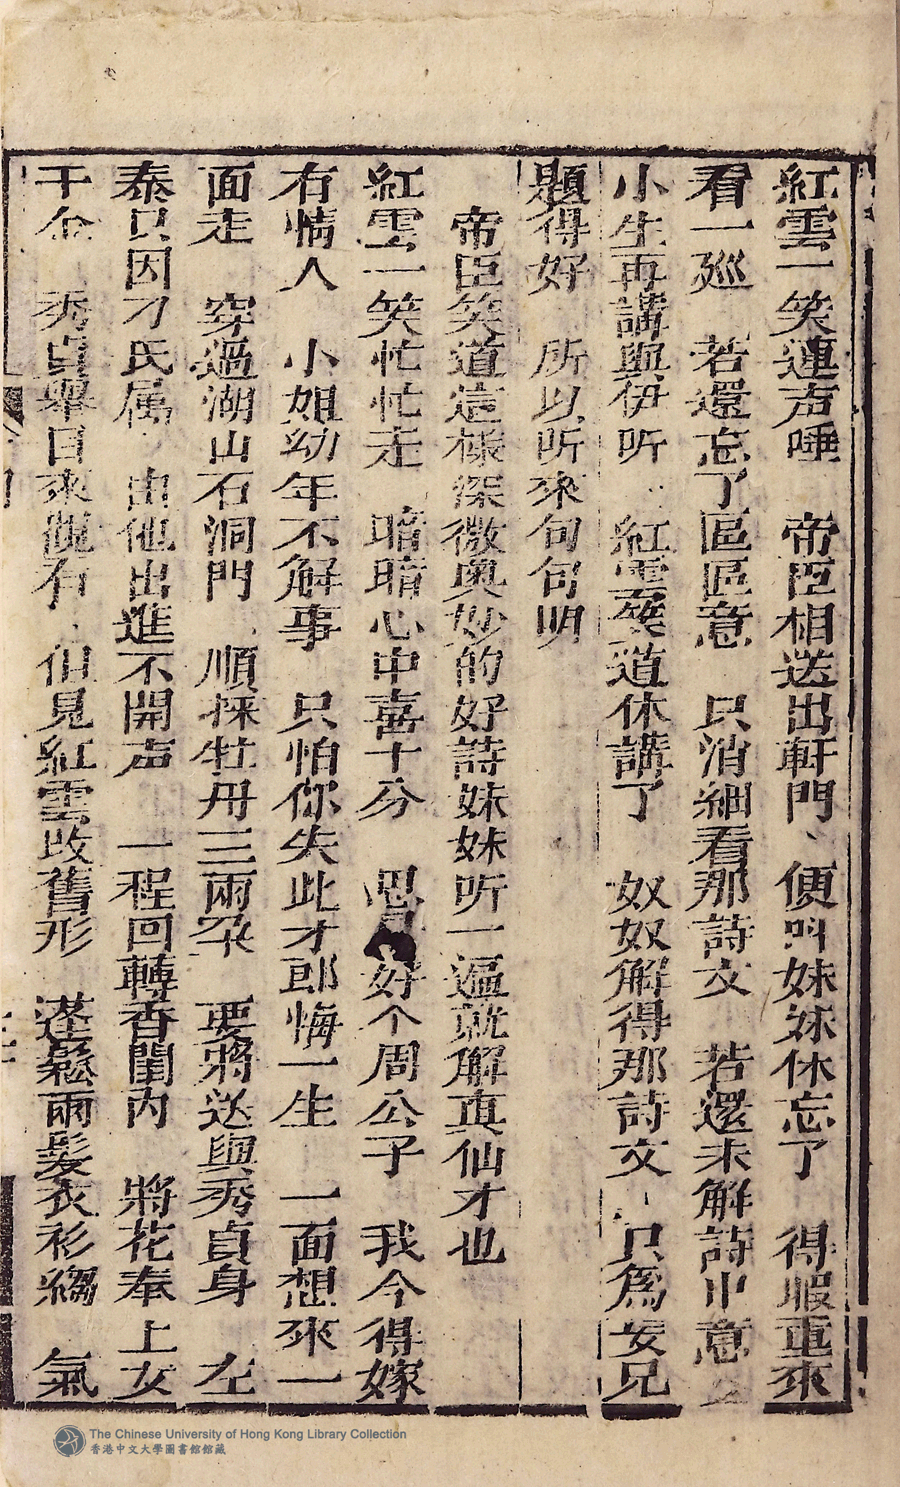 紅雲一笑連声唾　帝臣相送出軒門、便叫妹妹休忘了　得暇重來
看一廵　若還忘了區區意　只消細看那詩文　若還未解詩中意
小生再講與伊听　紅雲笑道休講了　奴奴解得那詩文　只為妄兄
題得好　所以听來句句明
帝臣笑道這樣深微奥妙的好詩妹妹听一遍就解真仙才也
紅雲一笑忙忙走　暗暗心中喜十分　思　好个周公子　我今得嫁
有情人　小姐幼年不解事　只怕你失此才郎悔一生　一面想來一
面走　穿過湖山石洞門　順採牡丹三兩朶　要將送與秀貞身　左
泰只因刁氏属　由他出進不開声　一程回轉香閨内　將花奉上女
千金　秀貞舉目來觀看　但見紅雲改舊形　蓬鬆兩髮衣衫縐　氣
The Chinese University of Hong Kong Library Collection
香港中文大學圖書館館藏